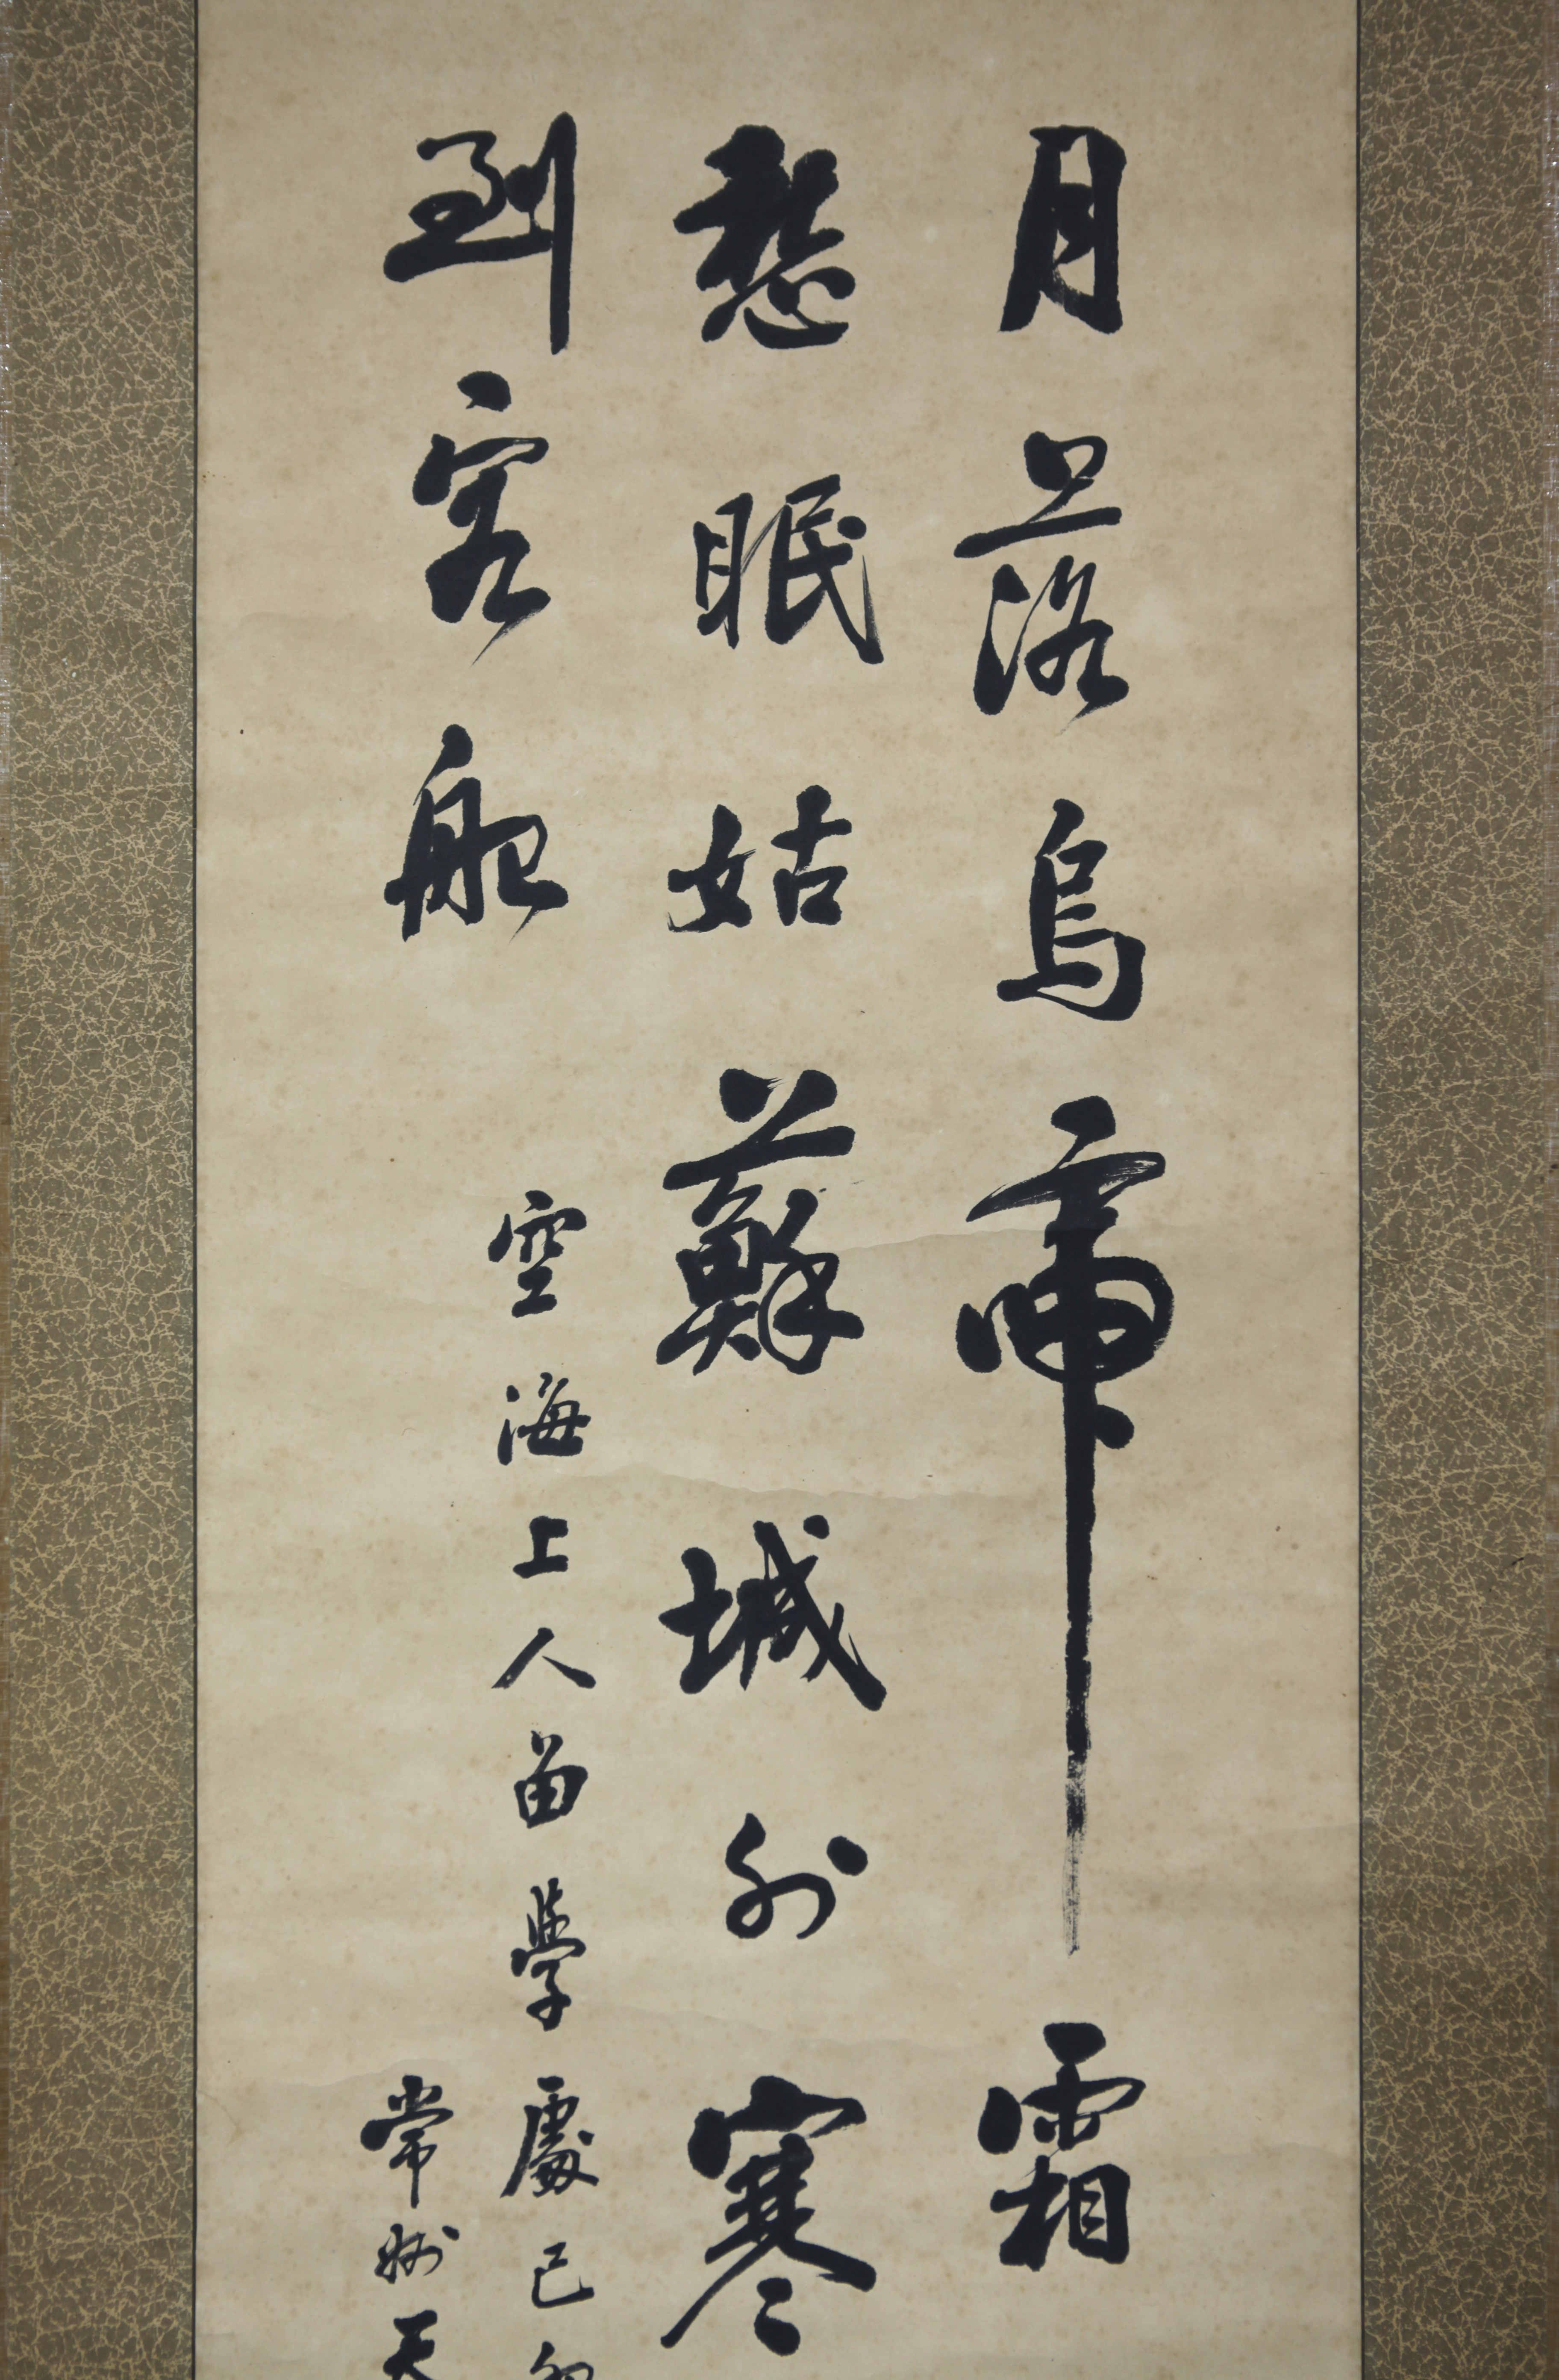 月落烏啼霜
愁眠姑蘇城外寒
到客船
空海上人留學處己卯
常州天